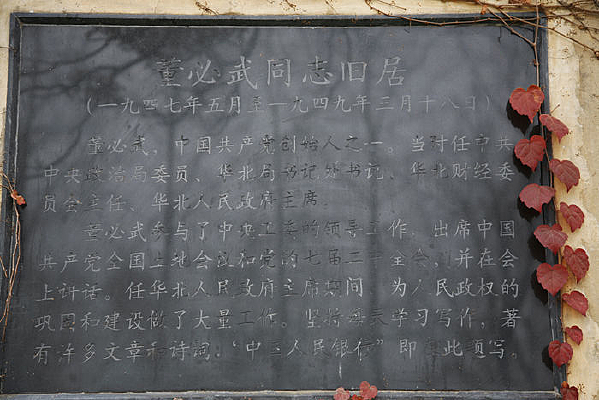 董必武同志旧居
(一九四七年五月至一九四九年三月十八日)
董必武，中国共产党创始人之一。当时任中共
中央政治局委员、华北局书记处书记、华北财经委
员会主任、华北人民政府主席.
董必武参与了中央工委的领导工作，出席中国
共产党全国土地会议和党的七届二中全会，并在会
上讲话。任华北人民政府主席期间 为人民政权的
巩固和建设做了大量工作。坚持每天学习写作，著
有许多文章和诗词。“中国人民银行”即 此 写。